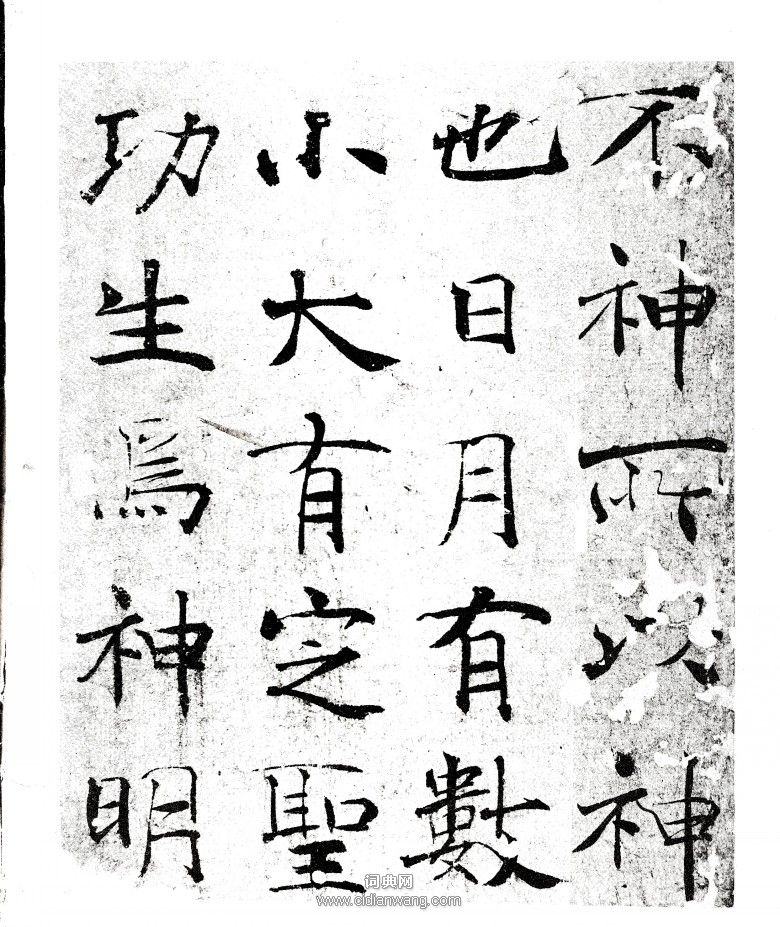 不神所以神
也日月有數
小大有定聖
功生焉神明
词典网
www.cidianwang.com